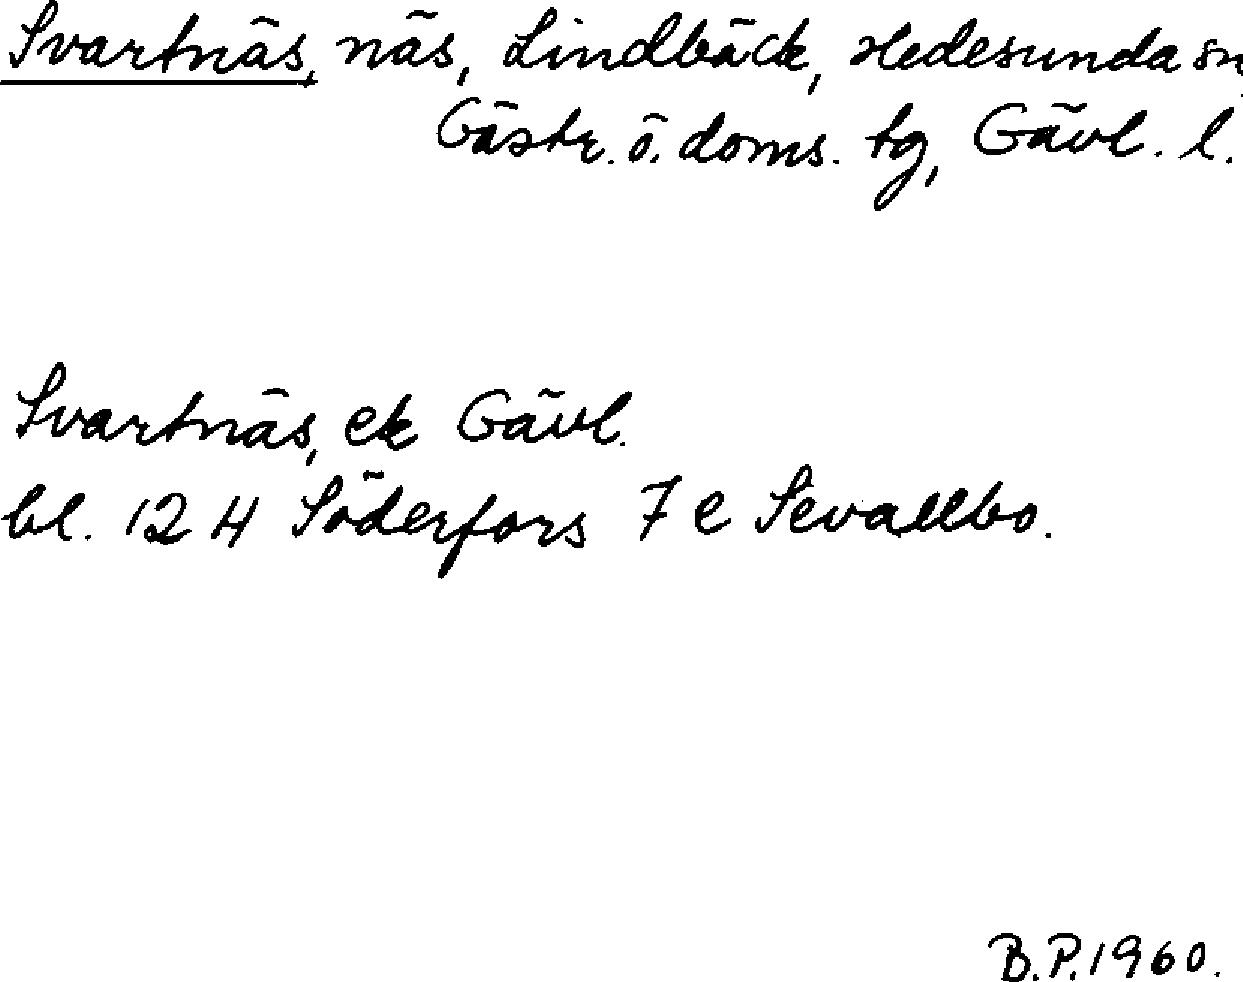 Svartnäs, näs, Lindbäck, Hedesunda sn
Gästr. ö. doms. tg, Gävl. l.
Svartnäs, ek Gävl.
bl. 12 H Söderfors 7 e Sevallbo.
B.P. 1960.